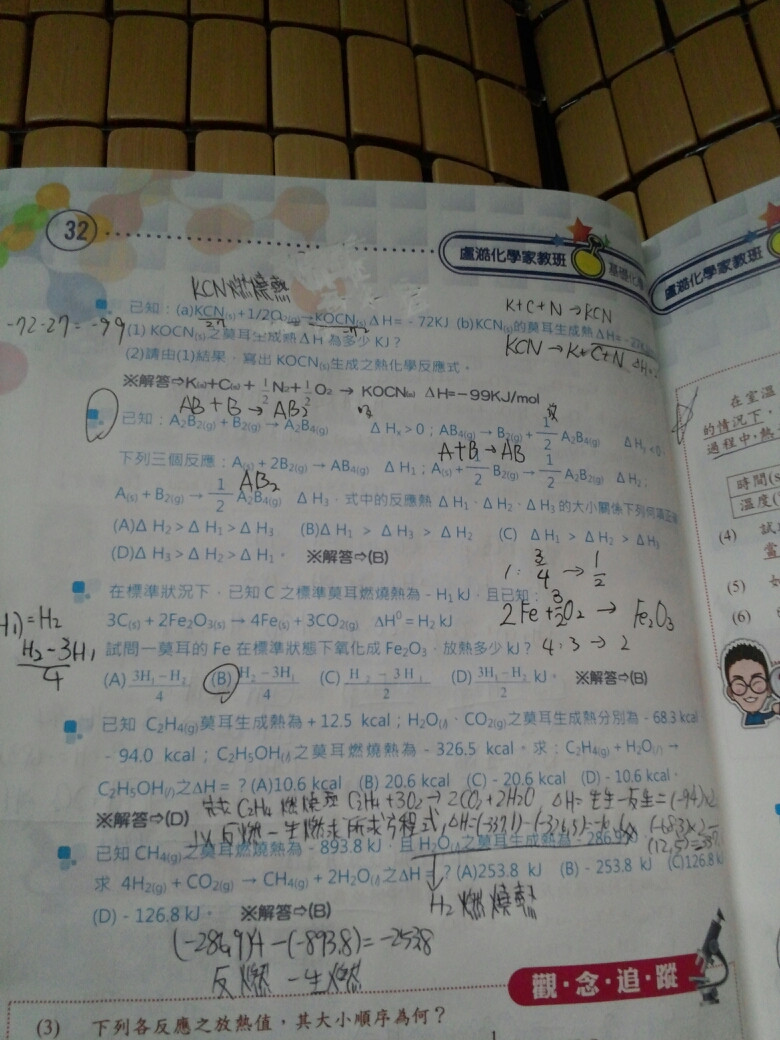 32
盧澔化學家教班
基礎化
盧澔化學家教班
KCN燃燒熱
K+C+N→KCN
已知：(a)KCN(s)+1/2O2(g)→KOCN(s) ΔH=-72KJ (b)KCN(s)的莫耳生成熱ΔH=-27
-72-27=-99
(1) KOCN(s)之莫耳生成熱ΔH為多少KJ？
KCN→K+C+N ΔH=
(2)請由(1)結果，寫出KOCN(s)生成之熱化學反應式。
※解答⇨K(s)+C(s)+1/2N2+1/2O2→KOCN(s) ΔH=-99KJ/mol
AB+B→AB2
已知：A2B2(g)+B2(g)→A2B4(g) ΔHx>0；AB4(g)→B2(g)+1/2A2B4(g) ΔHy<0
A+B→AB
下列三個反應：A(s)+2B2(g)→AB4(g) ΔH1；A(s)+1/2B2(g)→1/2A2B2(g) ΔH2；
AB2
A(s)+B2(g)→1/2A2B4(g) ΔH3，式中的反應熱ΔH1、ΔH2、ΔH3的大小關係下列何
(A)ΔH2>ΔH1>ΔH3 (B)ΔH1>ΔH3>ΔH2 (C) ΔH1>ΔH2>ΔH3
(D)ΔH3>ΔH2>ΔH1。 ※解答⇨(B)
1:3/4→1/2
在標準狀況下，已知C之標準莫耳燃燒熱為-H1 kJ，且已知：
2Fe+3/2O2→Fe2O3
3C(s)+2Fe2O3(s)→4Fe(s)+3CO2(g) ΔH0=H2 kJ
H1)=H2
H2-3H1/4
試問一莫耳的Fe在標準狀態下氧化成Fe2O3，放熱多少kJ？
4:3→2
(A) 3H1-H2/4 (B) H2-3H1/4 (C) H2-3H1/2 (D) 3H1-H2/2 kJ。 ※解答⇨(B)
已知 C2H4(g)莫耳生成熱為+12.5 kcal；H2O(l)、CO2(g)之莫耳生成熱分別為-68.3 kcal
-94.0 kcal；C2H5OH(l)之莫耳燃燒熱為-326.5 kcal。求：C2H4(g)+H2O(l)→
C2H5OH(l)之ΔH=？(A)10.6 kcal (B) 20.6 kcal (C)-20.6 kcal (D)-10.6 kcal。
C2H4燃燒熱 C2H4+3O2→2CO2+2H2O ΔH=生生-反生=(-94)×2
※解答⇨(D)
以反燃-生燃求所求方程式,ΔH=(-337.1)-(-326.5)=-10.6
(-68.3)×2-
(12.5)=-337
已知CH4(g)之莫耳燃燒熱為-893.8 kJ，且H2O(l)之莫耳生成熱為-286.9
求 4H2(g)+CO2(g)→CH4(g)+2H2O(l)之ΔH=？(A)253.8 kJ (B)-253.8 kJ (C)126.8 kJ
H2燃燒熱
(D)-126.8 kJ。 ※解答⇨(B)
(-286.9)4-(-893.8)=-253.8
反燃-生燃
觀·念·追·蹤
(3) 下列各反應之放熱值，其大小順序為何？
在室溫
的情況下，
過程中，熱
時間(s
溫度(
(4) 試
(5)
(6)